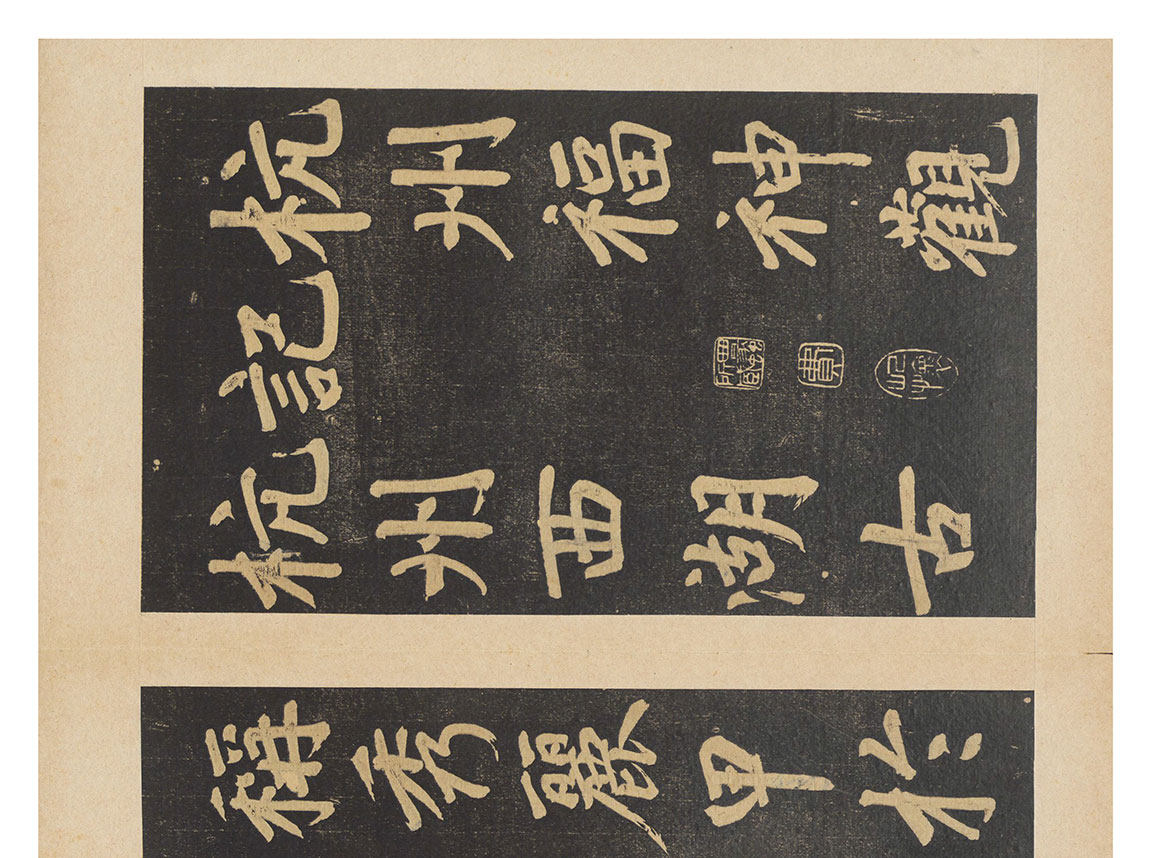 杭州福神觀
記
杭州西湖古
稱秀麗甲於